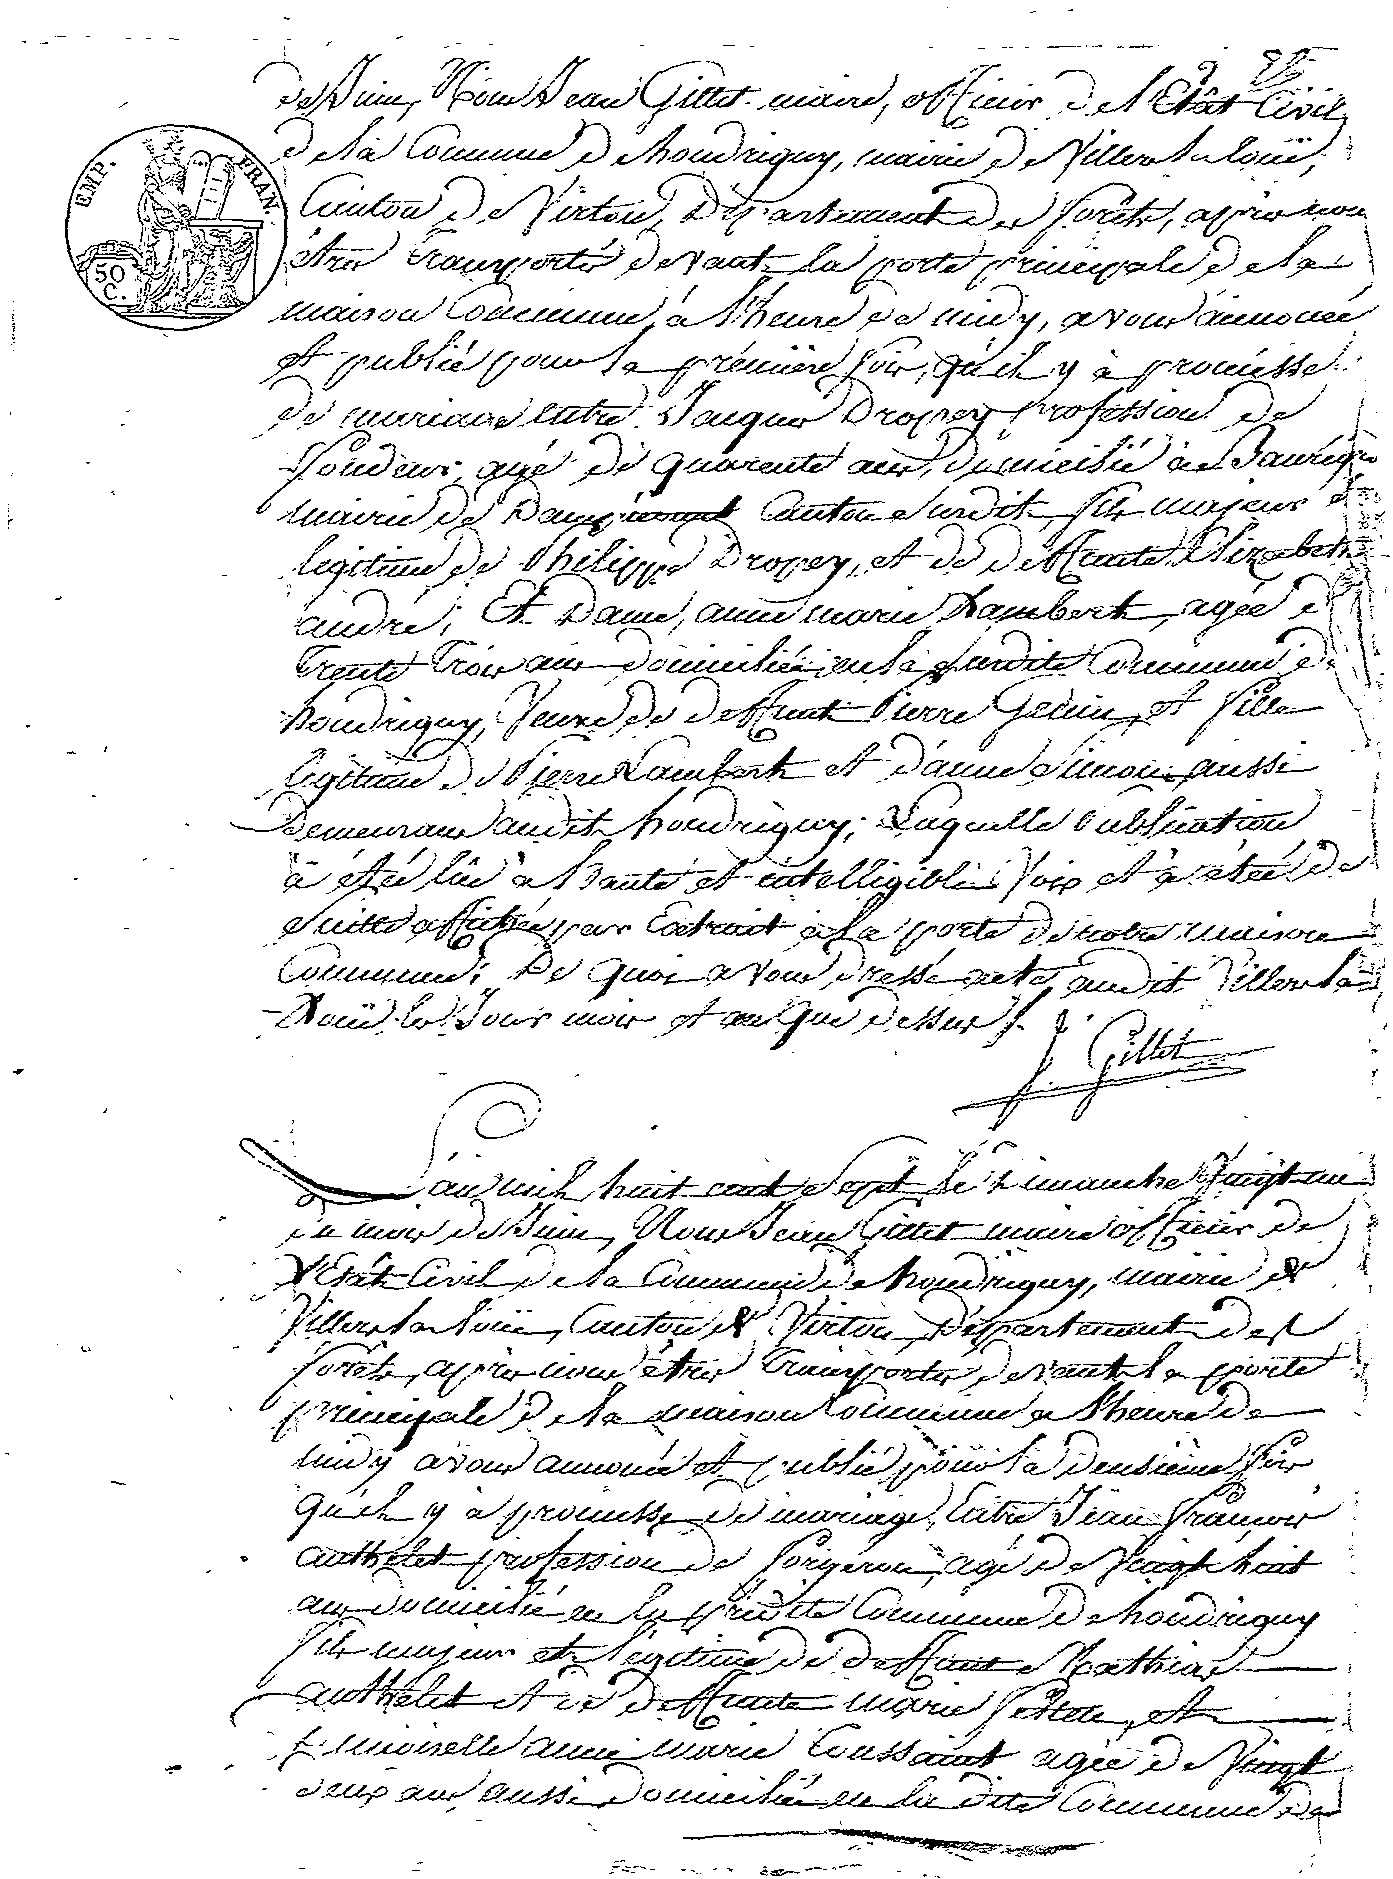 de Juin, Nous Jean Gillet maire, officier de l'Etât Civil
EMP. FRAN.
50 C.
de la Commune de houdrigny, mairie de Villers la loüe,
Canton de Virton, Département des forêts, après nous
êtres Transportés devant la porte principale de la
maison Commune, à l'heure de midy, avons annoncé
et publié pour la prémière fois, qu'il y à promésse
de mariage entre Jacques Dropsy profession de
fondeur, agé de quarente ans, domicilié à
mairie de Canton surdit, fils majeur et
legitime de Philippe Dropsy, et de deffunte Elizabeth
andré, Et Dame, anne marie Lambert, agée de
Trente Trois ans domiciliée en la surdite Commune de
houdrigny, Veuve de deffunt Pierre Gerin, et fille
légitime de Pierre Lambert et d'anne Simon, aussi
Demeurans audit houdrigny; Laquelle Publication
à étée lüe à haute et intelligible Voix et à étée de
suitte affichée par Extrait à la porte de notre maison
Commune; De quoi avons dressé acte audit Villers la
Loüe les Jour mois et an que dessus /. J. Gillet
L'an mil huit cent Sept le Dimanche Vingt un
du mois de Juin, Nous Jean Gillet maire officier de
l'Etât Civil de la Commune de houdrigny, mairie de
Villers la loüe, Canton de Virton, Département des
forêts, après nous êtres Transportés devant la porte
principale de la maison Commune à l'heure de
midy avons annoncé et publié pour la deusième fois
qu'il y à promesse de mariage, Entre Jean François
authelet profession de forgeron, agé de Vingt huit
ans domicilié en la prédite Commune de houdrigny
fils majeur et légitime de deffunt Mathias
authelet et de deffunte marie et
Demoiselle anne marie Toussaint agée de Vingt
deux ans, aussi domiciliée en la dite Commune de